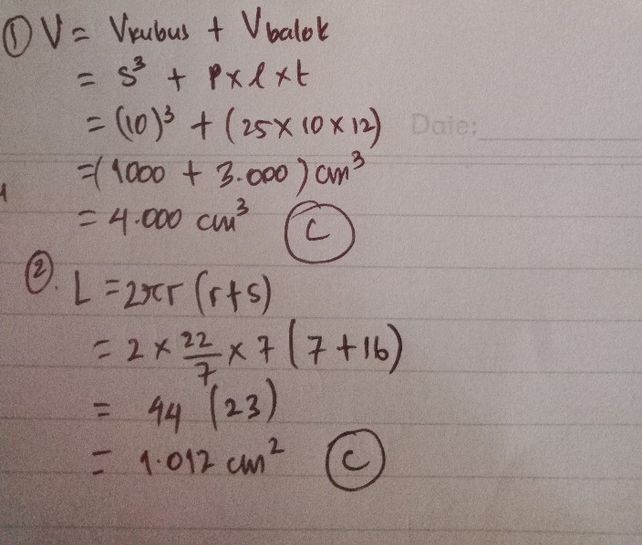 ① V = Vkubus + Vbalok
= s³ + p x l x t
= (10)³ + (25 x 10 x 12)
Date:
=(1000 + 3.000) cm³
= 4.000 cm³ C
②. L = 2πr (r+s)
= 2 x 22/7 x 7 (7+16)
= 44 (23)
= 1.012 cm² C